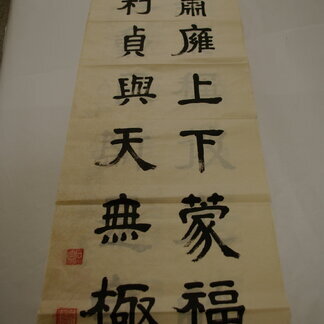 肅廱上下蒙福
利貞與天無極